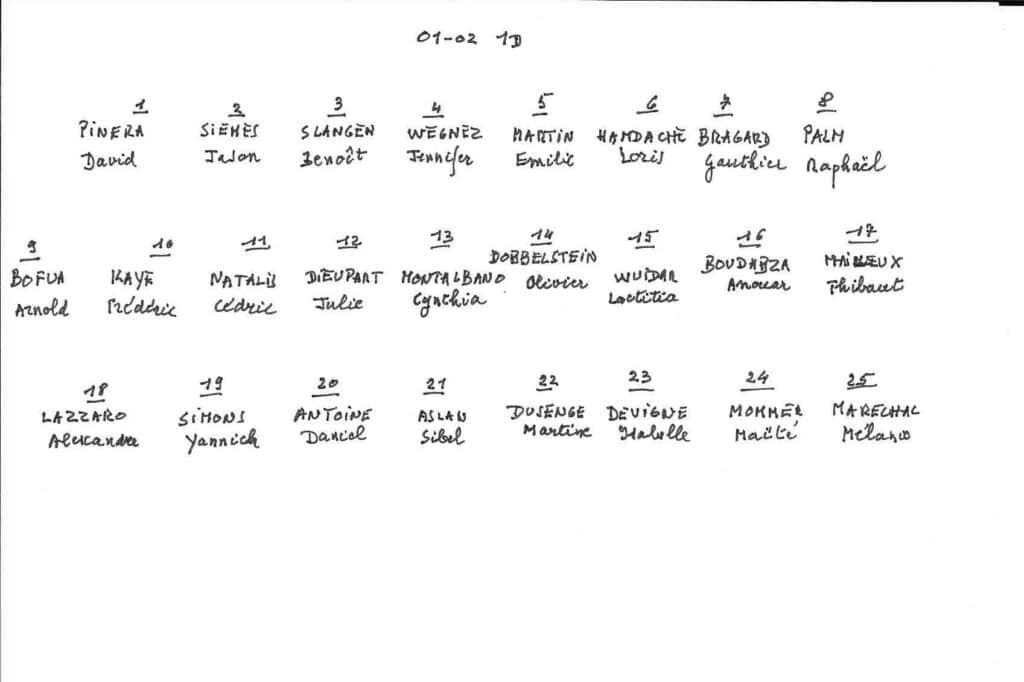 01-02 1D
1 2 3 4 5 6 7 8
PINERA SIEMES SLANGEN WEGNEZ MARTIN HAMDACHE BRAGARD PALM
David Jason Benoît Jennifer Emilie Loris Gauthier Raphaël
9 10 11 12 13 14 15 16 17
BOFUA KAYE NATALIS DIEUPART MONTALBANO DOBBELSTEIN WUIDAR BOUDABZA MAILLEUX
Arnold Frédéric Cédric Julie Cynthia Olivier Laetitia Anouar Thibaut
18 19 20 21 22 23 24 25
LAZZARO SIMONS ANTOINE ASLAN DUSENGE DEVIGNE MOMMER MARECHAL
Alexandre Yannick Daniel Sibel Martine Isabelle Maïté